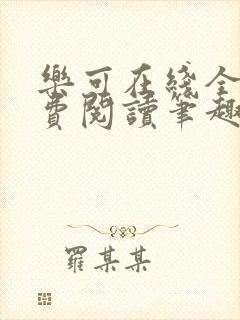 樂可在綫全
費閱讀筆趣
羅某某